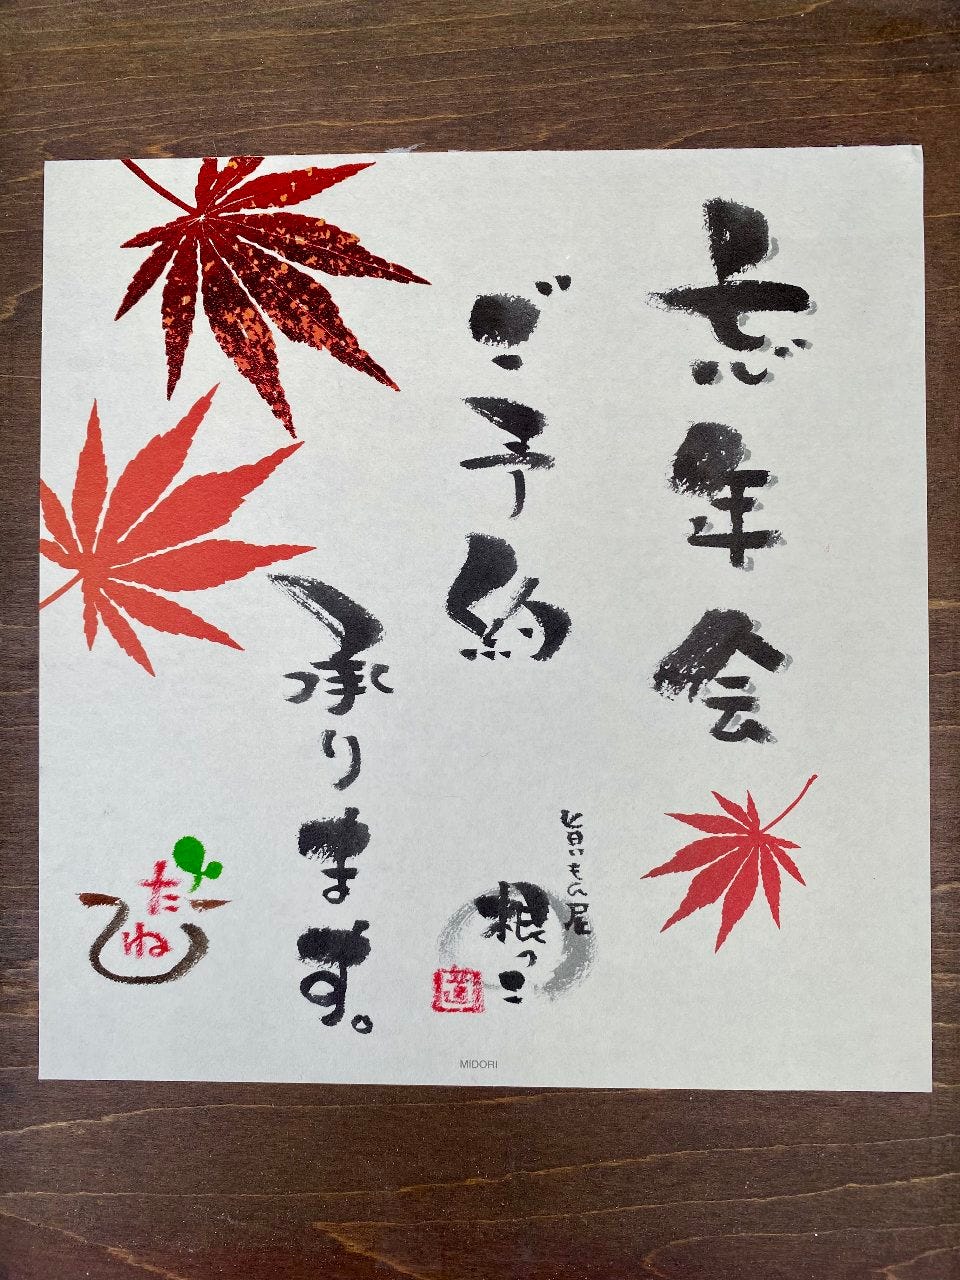 忘年会
ご予約
承ります。
旨いもん屋
根っこ
たね
MIDORI